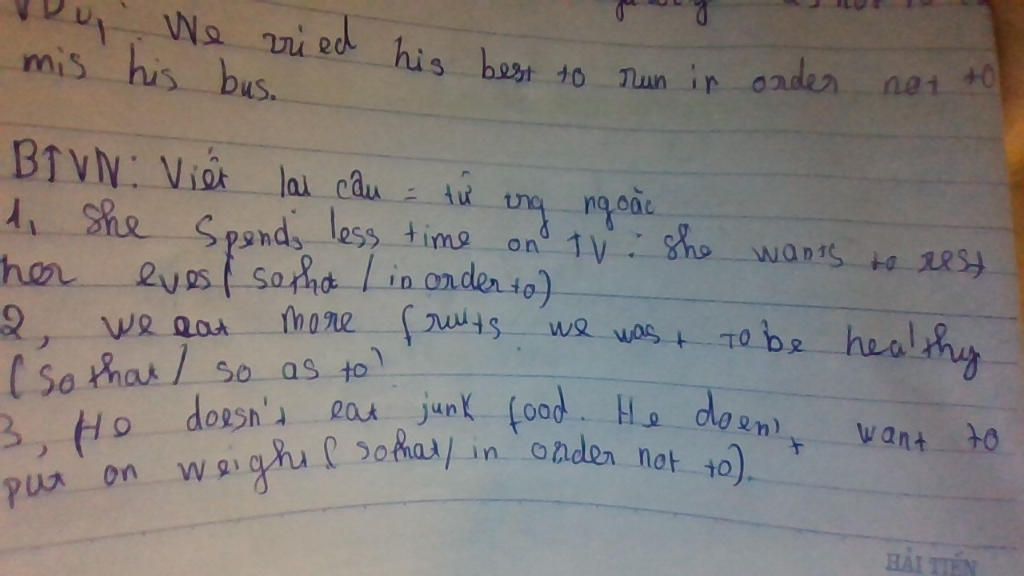 We tried his best to run in order not to
mis his bus.
BTVN: Viết lại câu = từ trg ngoặc
1, She Spends less time on TV : she wants to rest
her eyes (so that / in order to)
2, we eat more fruits we wast to be healthy
(So that / so as to)
3, He doesn't eat junk food. He doen't want to
put on weight (so that / in order not to).
HẢI TIẾN